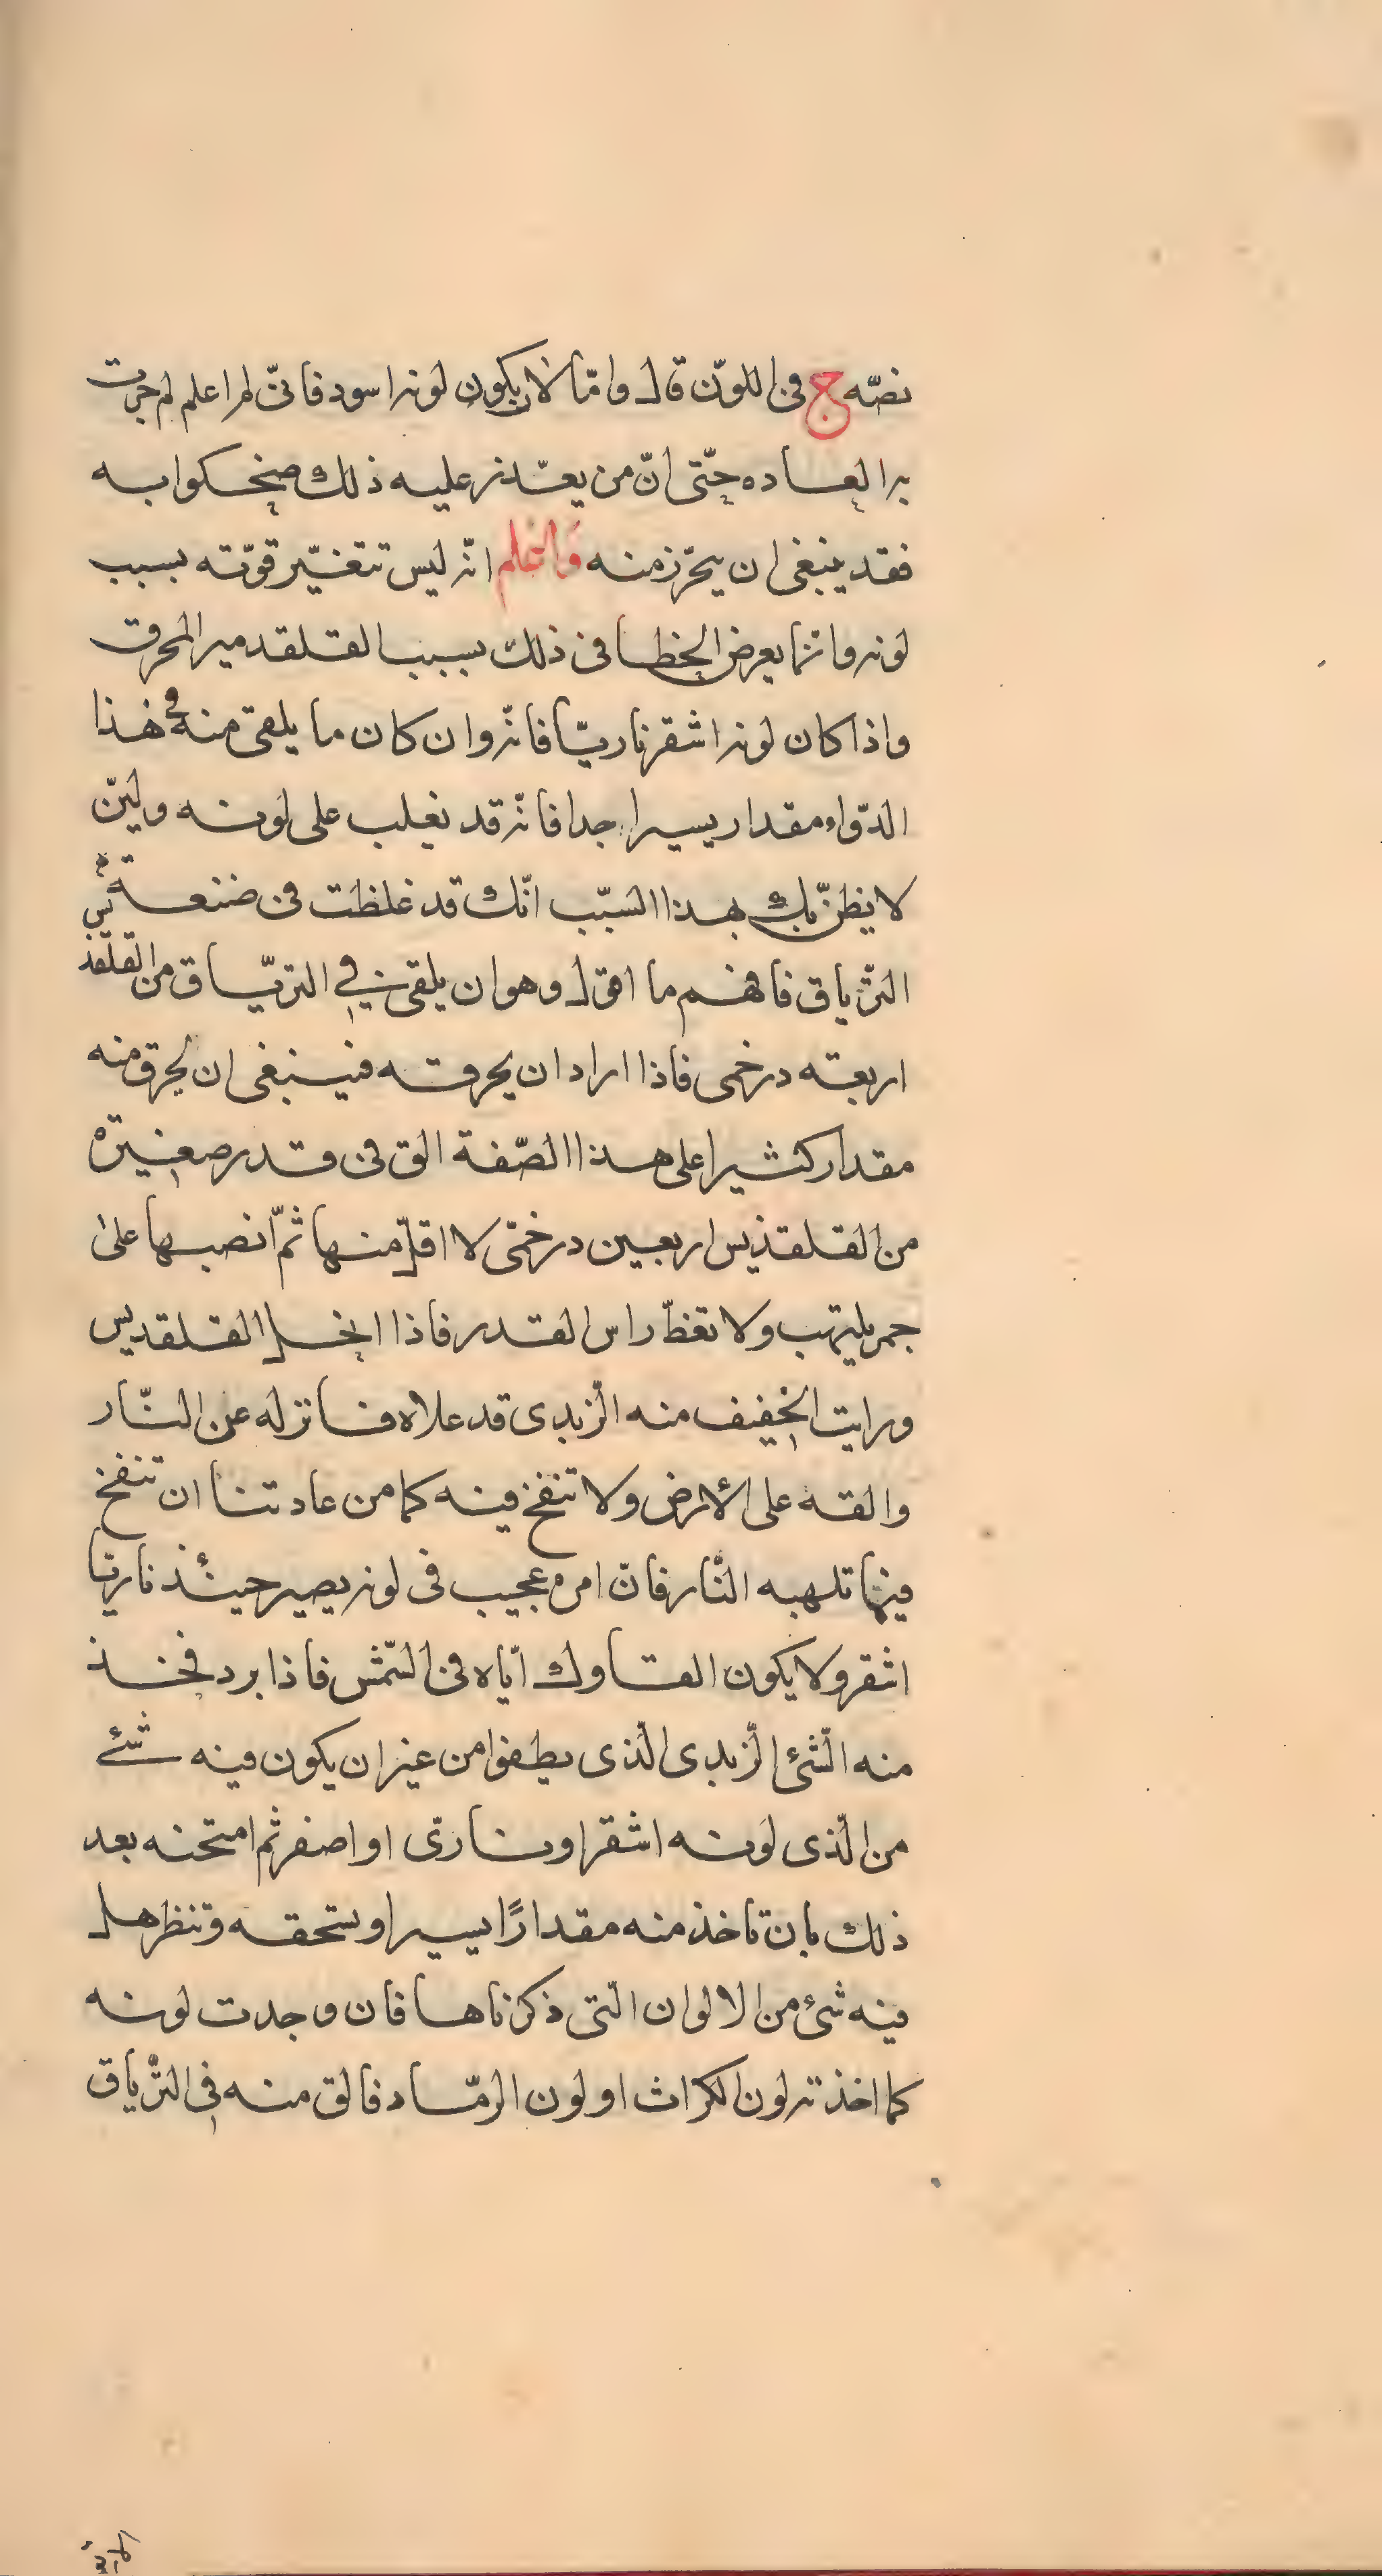 نصّه ج فى اللوّن قال وامّا لان يكون لونه اسود فانىّ لم اعلم لم جرت
به العاده حتّى انّ من يعتّذر عليه ذلك ضحكوا به
فقد ينبغى ان يحرّز منه والتعلم انّه ليس تتغيّر قوّته بسبب
لونه وانما يعرض الخطا فى ذلك بسبب القلقدمير المحرق
واذا كان لونه اشقر ناريّا فانّه وان كان ما يلقى منه فى هذا
الدّواء مقدار يسيرا جدا فانّه قد يغلب على لونه وليّن
لا يظنّ بك بهذا السّبب انّك قد غلظت فى صنعة
الترّياق فافهم ما اقول وهو ان يلقى فى الترّياق من القلقديس
اربعة درخمى فاذا اراد ان يحرقه فينبغى ان يحرق منه
مقدار كثيرا على هذا الصّفة الق فى قدر صغيرة
من القلقذيس اربعين درخمّى لا اقلّ منها ثمّ انصبها على
جمر يلتهب ولا تغطّ راس القدر فاذا انحل القلقديس
ورايت الخفيف منه الزّبدى قد علاه فانزله عن النّار
والقه على الأرض ولا تنفخ فيه كما من عادتنا ان تنفخ
فيما تلهبه النّار فانّ امره عجيب فى لونه يصير حينئذ ناريّا
اشقر ولا يكون القاوك ايّاه فى الشّمش فاذا برد فخذ
منه الشّئ الزّبدى الّذى يطفوا من غير ان يكون فيه شئ
من الّذى لونه اشقر او نارىّ او اصفر ثم امتحنه بعد
ذلك بان تاخذ منه مقدارًا يسيرا وستحقه وتنظر هل
فيه شئ من الالوان التّى ذكرناها فان وجدت لونه
كما اخذته لون الكرّاث او لون الرمّاد فالق منه فى الترّياق